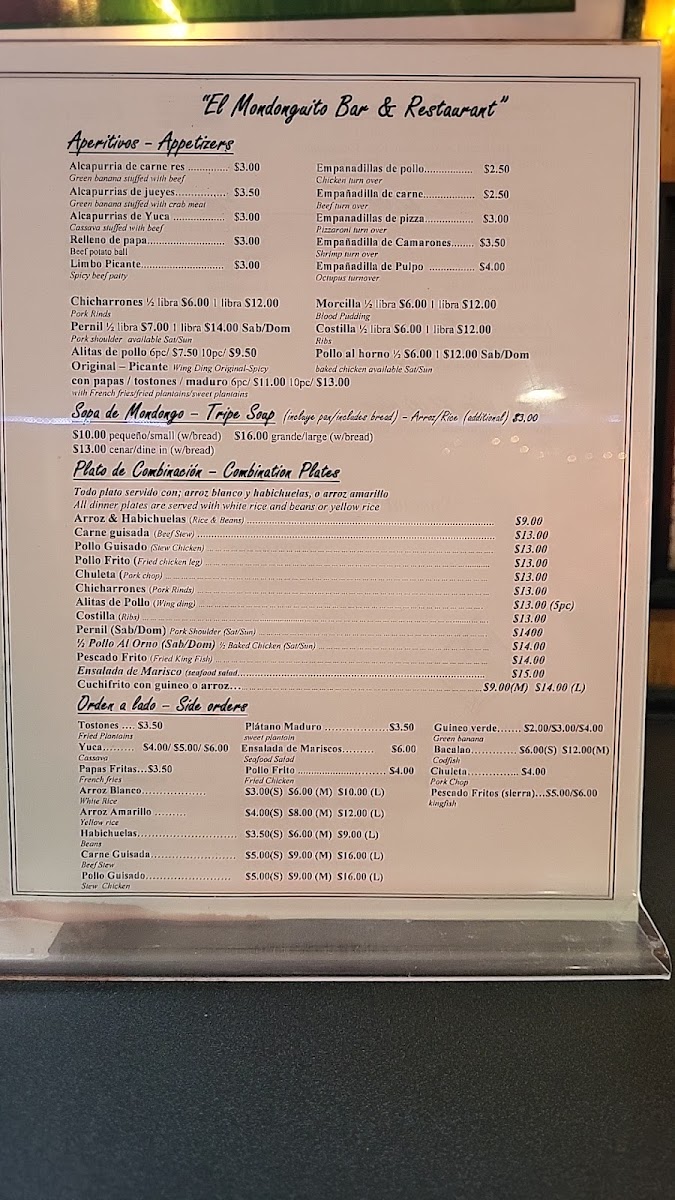 "El Mondonguito Bar & Restaurant"
Aperitivos – Appetizers
Alcapurria de carne res .............. $3.00
Green banana stuffed with beef
Alcapurrias de jueyes................. $3.50
Green banana stuffed with crab meat
Alcapurrias de Yuca ................. $3.00
Cassava stuffed with beef
Relleno de papa.......................... $3.00
Beef potato ball
Limbo Picante........................... $3.00
Spicy beef patty
Empanadillas de pollo................ $2.50
Chicken turn over
Empañadilla de carne................. $2.50
Beef turn over
Empanadillas de pizza................ $3.00
Pizzaroni turn over
Empañadilla de Camarones....... $3.50
Shrimp turn over
Empañadilla de Pulpo ............... $4.00
Octupus turnover
Chicharrones ½ libra $6.00 1 libra $12.00
Pork Rinds
Pernil ½ libra $7.00 1 libra $14.00 Sab/Dom
Pork shoulder available Sat/Sun
Alitas de pollo 6pc/ $7.50 10pc/ $9.50
Original – Picante Wing Ding Original-Spicy
con papas / tostones / maduro 6pc/ $11.00 10pc/ $13.00
with French fries/fried plantains/sweet plantains
Morcilla ½ libra $6.00 1 libra $12.00
Blood Pudding
Costilla ½ libra $6.00 1 libra $12.00
Ribs
Pollo al horno ½ $6.00 1 $12.00 Sab/Dom
baked chicken available Sat/Sun
Sopa de Mondongo – Tripe Soup (incluye pan/includes bread) – Arroz/Rice (additional) $3.00
$10.00 pequeño/small (w/bread) $16.00 grande/large (w/bread)
$13.00 cenar/dine in (w/bread)
Plato de Combinación – Combination Plates
Todo plato servido con; arroz blanco y habichuelas, o arroz amarillo
All dinner plates are served with white rice and beans or yellow rice
Arroz & Habichuelas (Rice & Beans) ........ $9.00
Carne guisada (Beef Stew) ........ $13.00
Pollo Guisado (Stew Chicken) ........ $13.00
Pollo Frito (Fried chicken leg) ........ $13.00
Chuleta (Pork chop) ........ $13.00
Chicharrones (Pork Rinds) ........ $13.00
Alitas de Pollo (Wing ding) ........ $13.00 (5pc)
Costilla (Ribs) ........ $13.00
Pernil (Sab/Dom) Pork Shoulder (Sat/Sun) ........ $1400
½ Pollo Al Orno (Sab/Dom) ½ Baked Chicken (Sat/Sun) ........ $14.00
Pescado Frito (Fried King Fish) ........ $14.00
Ensalada de Marisco (seafood salad........ $15.00
Cuchifrito con guineo o arroz... ........ $9.00(M) $14.00 (L)
Orden a lado – Side orders
Tostones .... $3.50
Fried Plantains
Yuca......... $4.00/ $5.00/ $6.00
Cassava
Papas Fritas...$3.50
French fries
Plátano Maduro .................. $3.50
sweet plantain
Ensalada de Mariscos......... $6.00
Seafood Salad
Pollo Frito ......................... $4.00
Fried Chicken
Guineo verde....... $2.00/$3.00/$4.00
Green banana
Bacalao............ $6.00(S) $12.00(M)
Codfish
Chuleta.............. $4.00
Pork Chop
Pescado Fritos (sierra)...$5.00/$6.00
kingfish
Arroz Blanco................. $3.00(S) $6.00 (M) $10.00 (L)
White Rice
Arroz Amarillo ......... $4.00(S) $8.00 (M) $12.00 (L)
Yellow rice
Habichuelas.......................... $3.50(S) $6.00 (M) $9.00 (L)
Beans
Carne Guisada....................... $5.00(S) $9.00 (M) $16.00 (L)
Beef Stew
Pollo Guisado....................... $5.00(S) $9.00 (M) $16.00 (L)
Stew Chicken